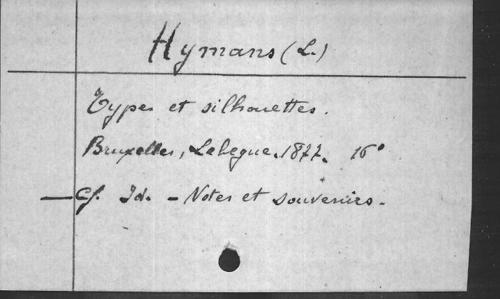 Hymans (L.)
Types et silhouettes.
Bruxelles, Lebègue. 1877. 16°
— Cf. Id. — Notes et souvenirs.